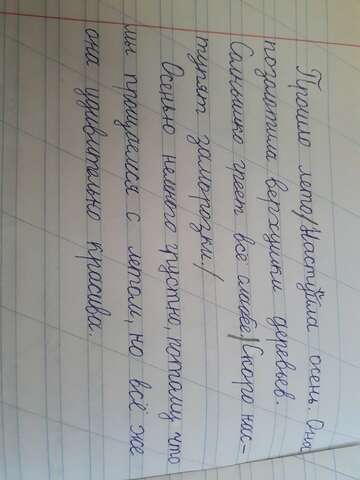 Прошло лето/Наступила осень. Она
позолотила верхушки деревьев.
Солнышко греет все слабее/Скоро нас-
тупят заморозки/
Осенью немного грустно, потому что
мы прощаемся с летом, но всё же
она удивительно красива.